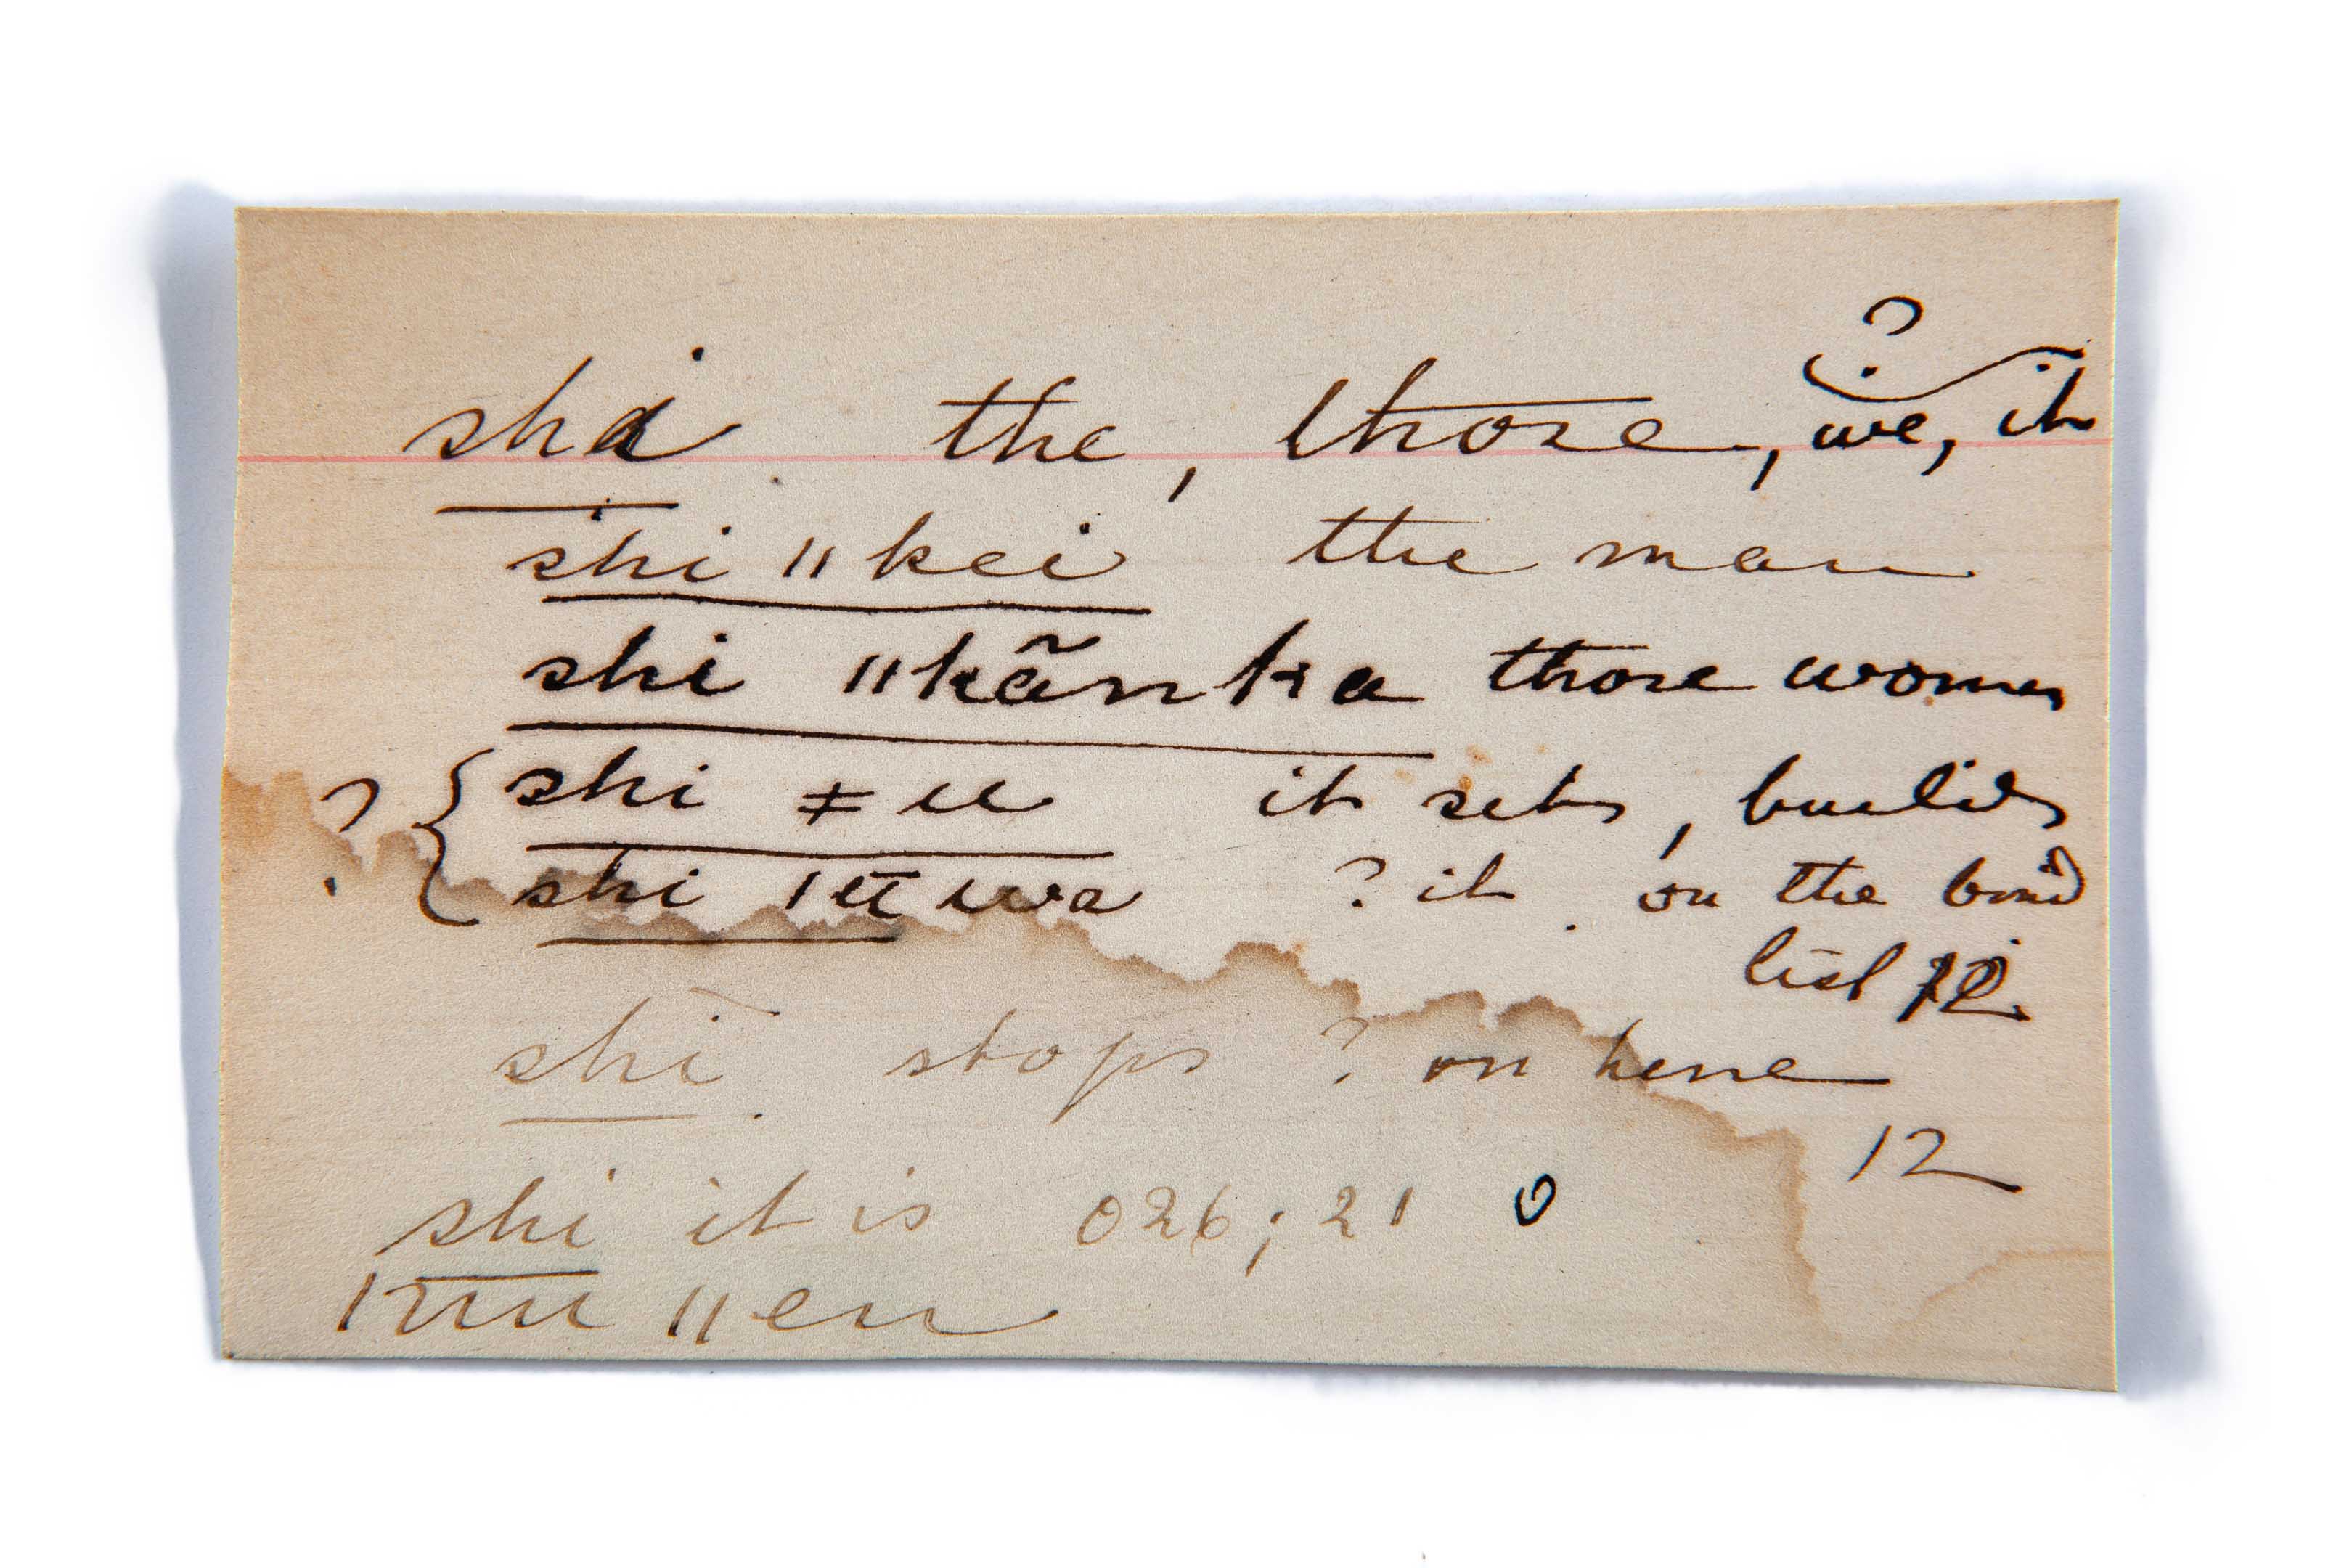 shi the, those, we, it
?
shi ǁkei the man
shi ǁkãnka those women
? { shi ǂu it sets, builds
shi ǀūwa ? it on the
list 12
shī stops ? on
12
shi it is 026; 21 0
ǁen